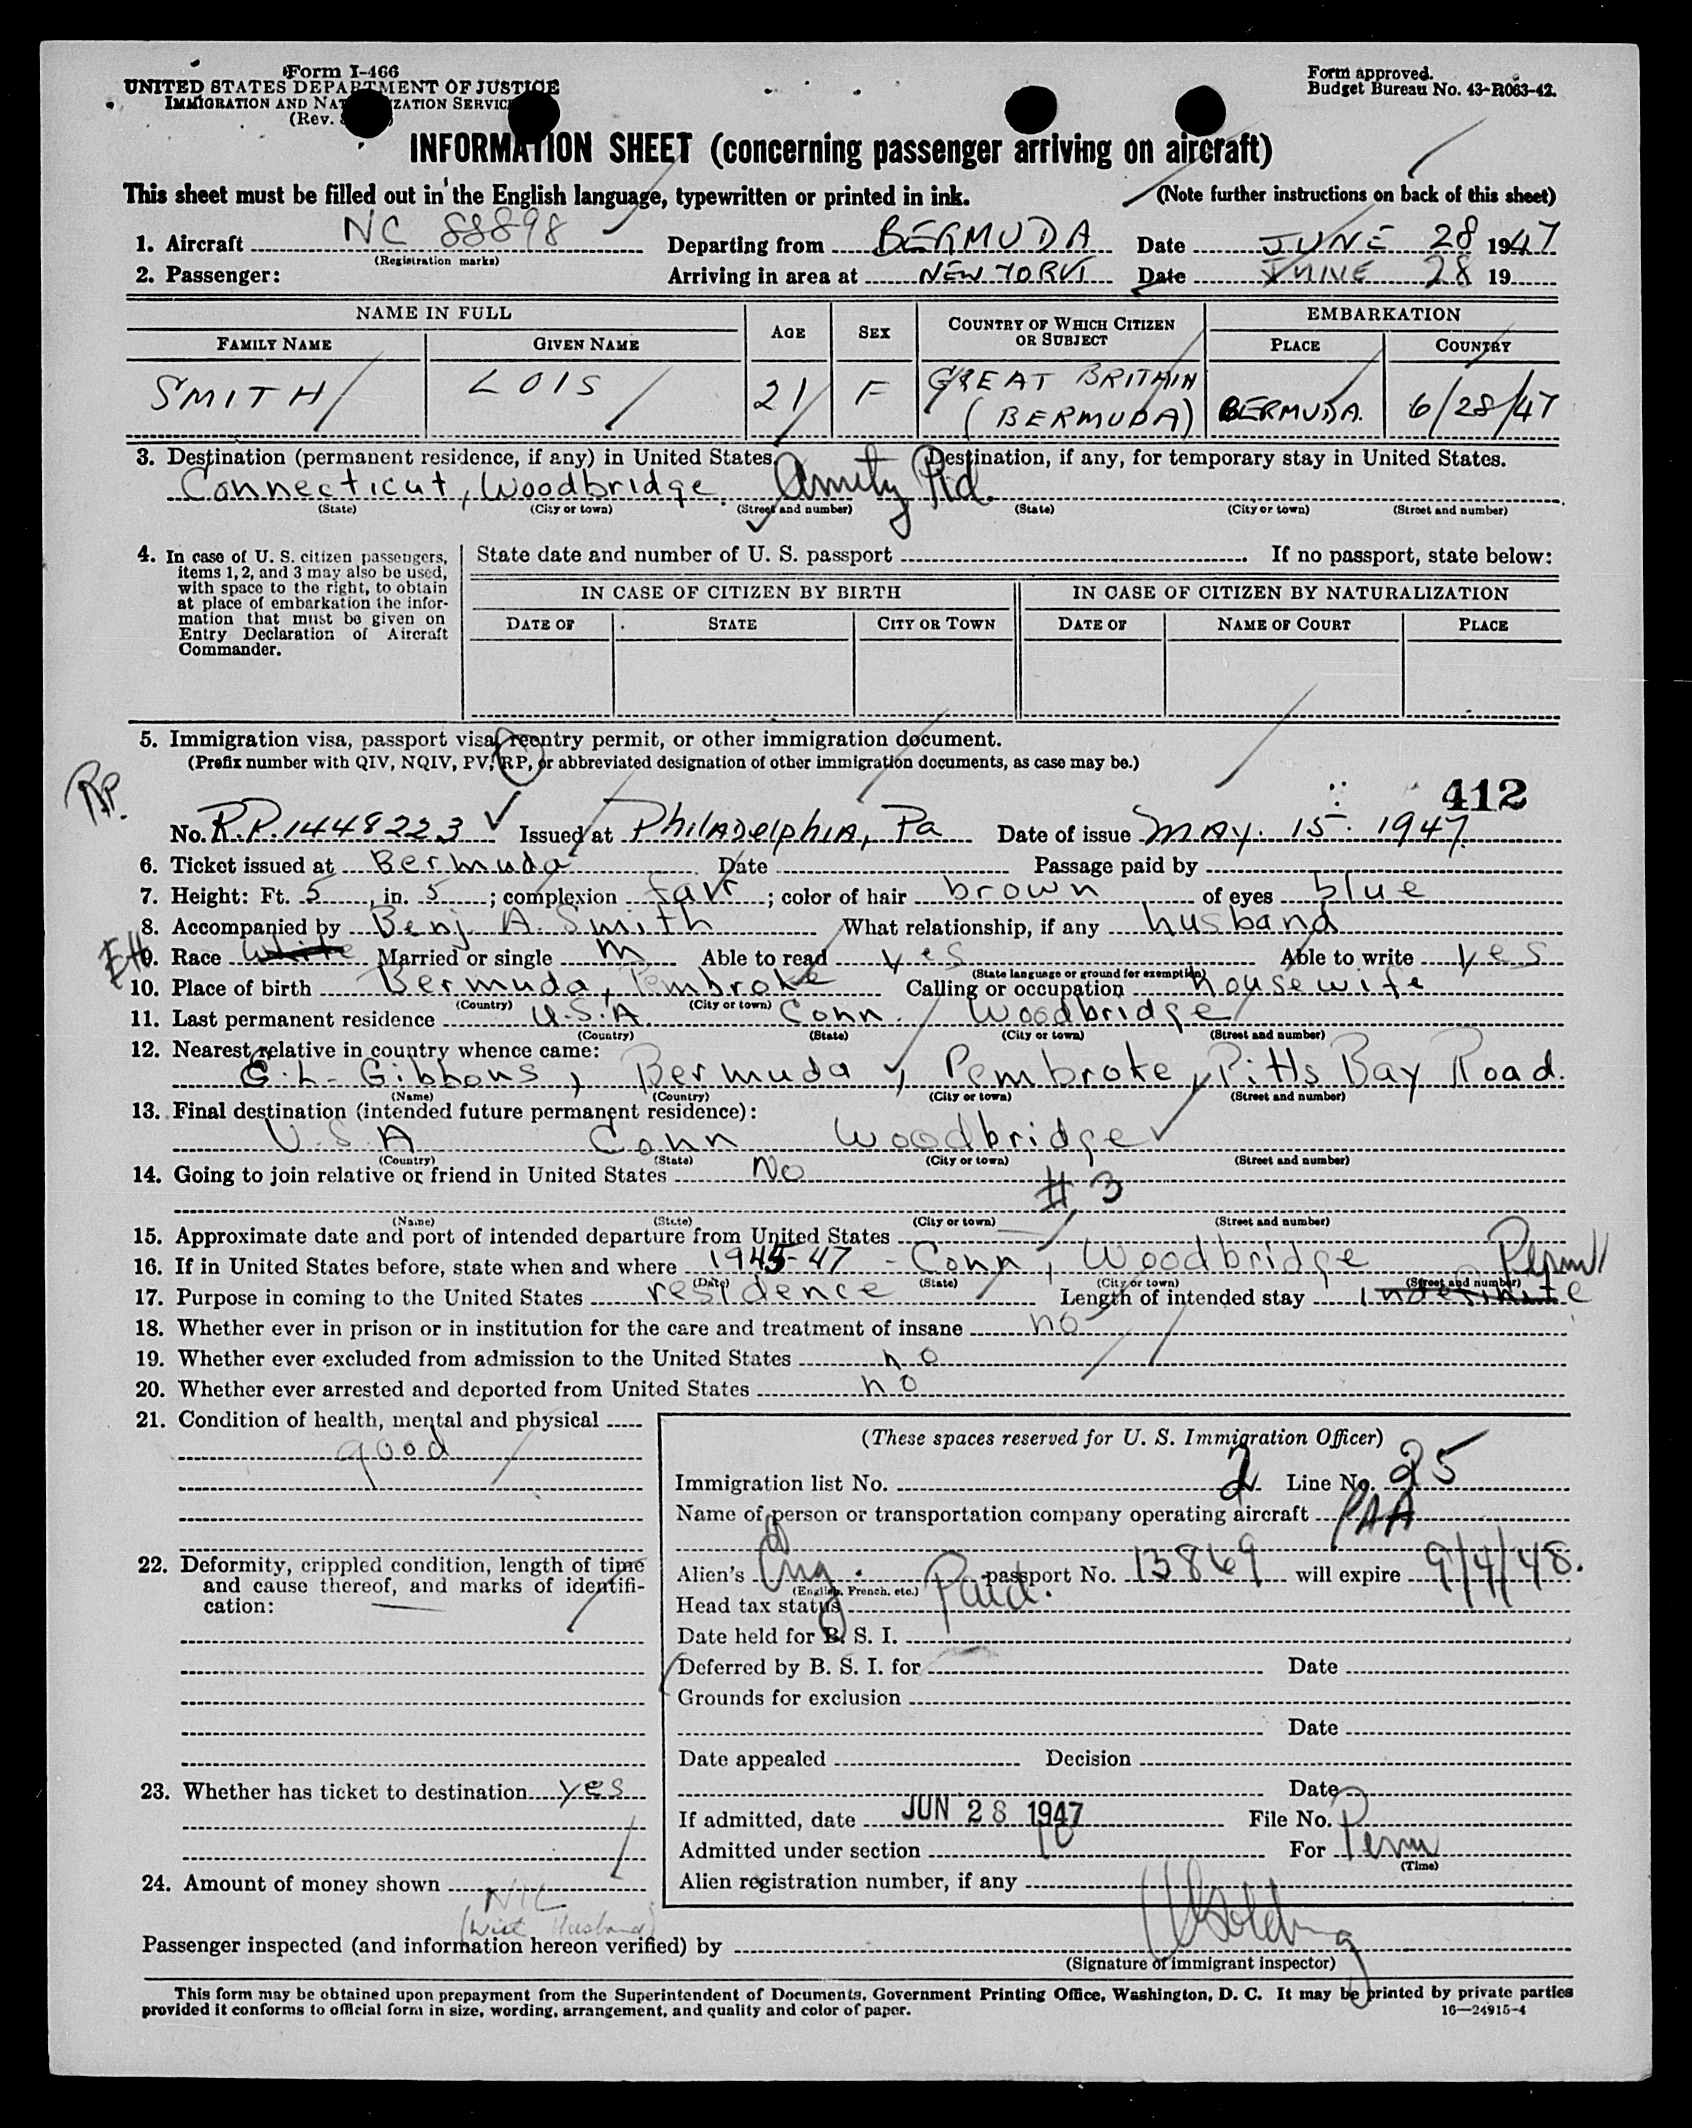 Form I-466
UNITED STATES DEPARTMENT OF JUSTICE
IMMIGRATION AND NAT IZATION SERVIC
(Rev.
Form approved.
Budget Bureau No. 43-R063-42.
INFORMATION SHEET (concerning passenger arriving on aircraft)
This sheet must be filled out in the English language, typewritten or printed in ink. (Note further instructions on back of this sheet)
1. Aircraft NC 88898 Departing from BERMUDA Date JUNE 28 1947
(Registration marks)
2. Passenger: Arriving in area at NEW YORK Date JUNE 28 19
NAME IN FULL AGE SEX COUNTRY OF WHICH CITIZEN OR SUBJECT EMBARKATION
FAMILY NAME GIVEN NAME PLACE COUNTRY
SMITH LOIS 21 F GREAT BRITAIN (BERMUDA) BERMUDA. 6/28/47
3. Destination (permanent residence, if any) in United States. Destination, if any, for temporary stay in United States.
Connecticut, Woodbridge. Amity Rd.
(State) (City or town) (Street and number) (State) (City or town) (Street and number)
4. In case of U. S. citizen passengers,
items 1, 2, and 3 may also be used,
with space to the right, to obtain
at place of embarkation the infor-
mation that must be given on
Entry Declaration of Aircraft
Commander.
State date and number of U. S. passport . If no passport, state below:
IN CASE OF CITIZEN BY BIRTH IN CASE OF CITIZEN BY NATURALIZATION
DATE OF STATE CITY OR TOWN DATE OF NAME OF COURT PLACE
5. Immigration visa, passport visa, reentry permit, or other immigration document.
(Prefix number with QIV, NQIV, PV, RP, or abbreviated designation of other immigration documents, as case may be.)
RP.
412
No. R.P. 1448223 Issued at Philadelphia, Pa Date of issue May. 15. 1947.
6. Ticket issued at Bermuda Date Passage paid by
7. Height: Ft. 5, in. 5; complexion fair; color of hair brown of eyes blue
8. Accompanied by Benj. A. Smith What relationship, if any husband
9. Race White Married or single M Able to read yes Able to write yes
(State language or ground for exemption)
10. Place of birth Bermuda, Pembroke Calling or occupation housewife
(Country) (City or town)
11. Last permanent residence U.S.A. Conn. Woodbridge
(Country) (State) (City or town) (Street and number)
12. Nearest relative in country whence came:
G.L. Gibbons, Bermuda, Pembroke, Pitts Bay Road.
(Name) (Country) (City or town) (Street and number)
13. Final destination (intended future permanent residence):
U.S.A Conn Woodbridge
(Country) (State) (City or town) (Street and number)
14. Going to join relative or friend in United States No
# 3
(Name) (State) (City or town) (Street and number)
15. Approximate date and port of intended departure from United States
16. If in United States before, state when and where 1945-47 - Conn, Woodbridge
(Date) (State) (City or town) (Street and number)
Perm
17. Purpose in coming to the United States residence Length of intended stay Indefinite
18. Whether ever in prison or in institution for the care and treatment of insane no
19. Whether ever excluded from admission to the United States no
20. Whether ever arrested and deported from United States no
21. Condition of health, mental and physical
good
22. Deformity, crippled condition, length of time
and cause thereof, and marks of identifi-
cation:
23. Whether has ticket to destination yes
24. Amount of money shown NIL
(With Husband)
(These spaces reserved for U. S. Immigration Officer)
Immigration list No. 2 Line No. 25
Name of person or transportation company operating aircraft PAA
Alien's Eng. passport No. 13869 will expire 9/4/48.
(English, French, etc.)
Head tax status Paid.
Date held for B. S. I.
Deferred by B. S. I. for Date
Grounds for exclusion
Date
Date appealed Decision
Date
If admitted, date JUN 28 1947 File No.
Admitted under section 10 For Perm
(Time)
Alien registration number, if any
Passenger inspected (and information hereon verified) by
(Signature of immigrant inspector)
This form may be obtained upon prepayment from the Superintendent of Documents, Government Printing Office, Washington, D. C. It may be printed by private parties
provided it conforms to official form in size, wording, arrangement, and quality and color of paper. 16—24915-4